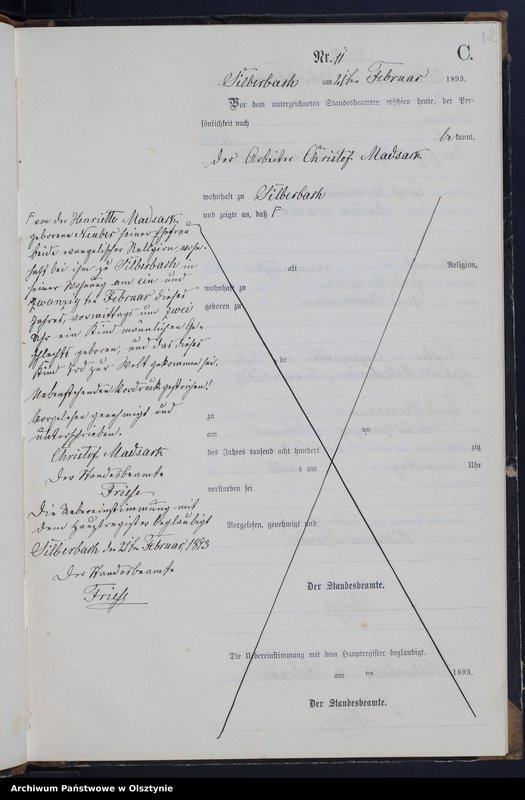 132
C.
Nr. 11
Silberbach am 21ten Februar 1893.
Vor dem unterzeichneten Standesbeamten erschien heute, der Per-
sönlichkeit nach
bekannt,
der Arbeiter Christof Madsack
wohnhaft zu Silberbach
und zeigte an, daß Γ
Γ von der Henriette Madsack
geborene Neuber seiner Ehefrau
beide evangelischer Religion, wohn-
haft bei ihm zu Silberbach in
seiner Wohnung am ein und
zwanzigten Februar dieses
Jahres, vormittags um zwei
Uhr ein Kind männlichen Ge-
schlechts geboren, und das dieses
Kind todt zur Welt gekommen sei.
Nebenstehenden Vordruck gestrichen!
Vorgelesen genehmigt und
unterschrieben.
Christof Madsack
Der Standesbeamte
Friese
Die Uebereinstimmung mit
dem Hauptregister beglaubigt
Silberbach den 21ten Februar 1893
Der Standesbeamte
Friese
alt Religion,
wohnhaft zu
geboren zu
de
zu
am ten
des Jahres tausend acht hundert zig
s um Uhr
verstorben sei
Vorgelesen, genehmigt und
Der Standesbeamte.
Die Uebereinstimmung mit dem Hauptregister beglaubigt.
am ten 1893.
Der Standesbeamte.
Archiwum Państwowe w Olsztynie